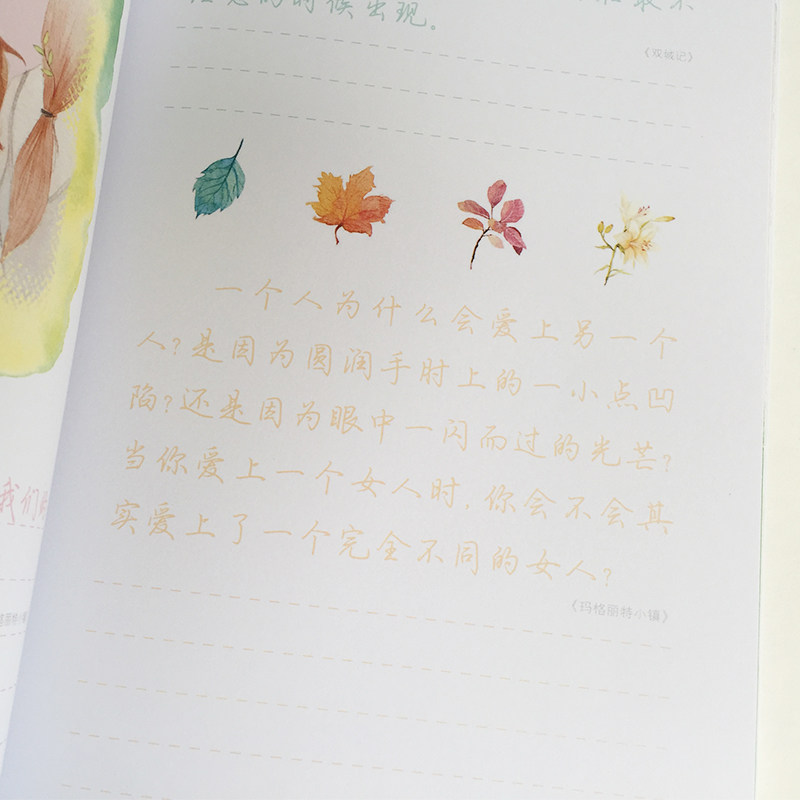 的时候出现。
《双城记》
一个人为什么会爱上另一个
人?是因为圆润手肘上的一小点凹
陷?还是因为眼中一闪而过的光芒?
当你爱上一个女人时,你会不会其
实爱上了一个完全不同的女人?
《玛格丽特小镇》
我们
格丽特小镇